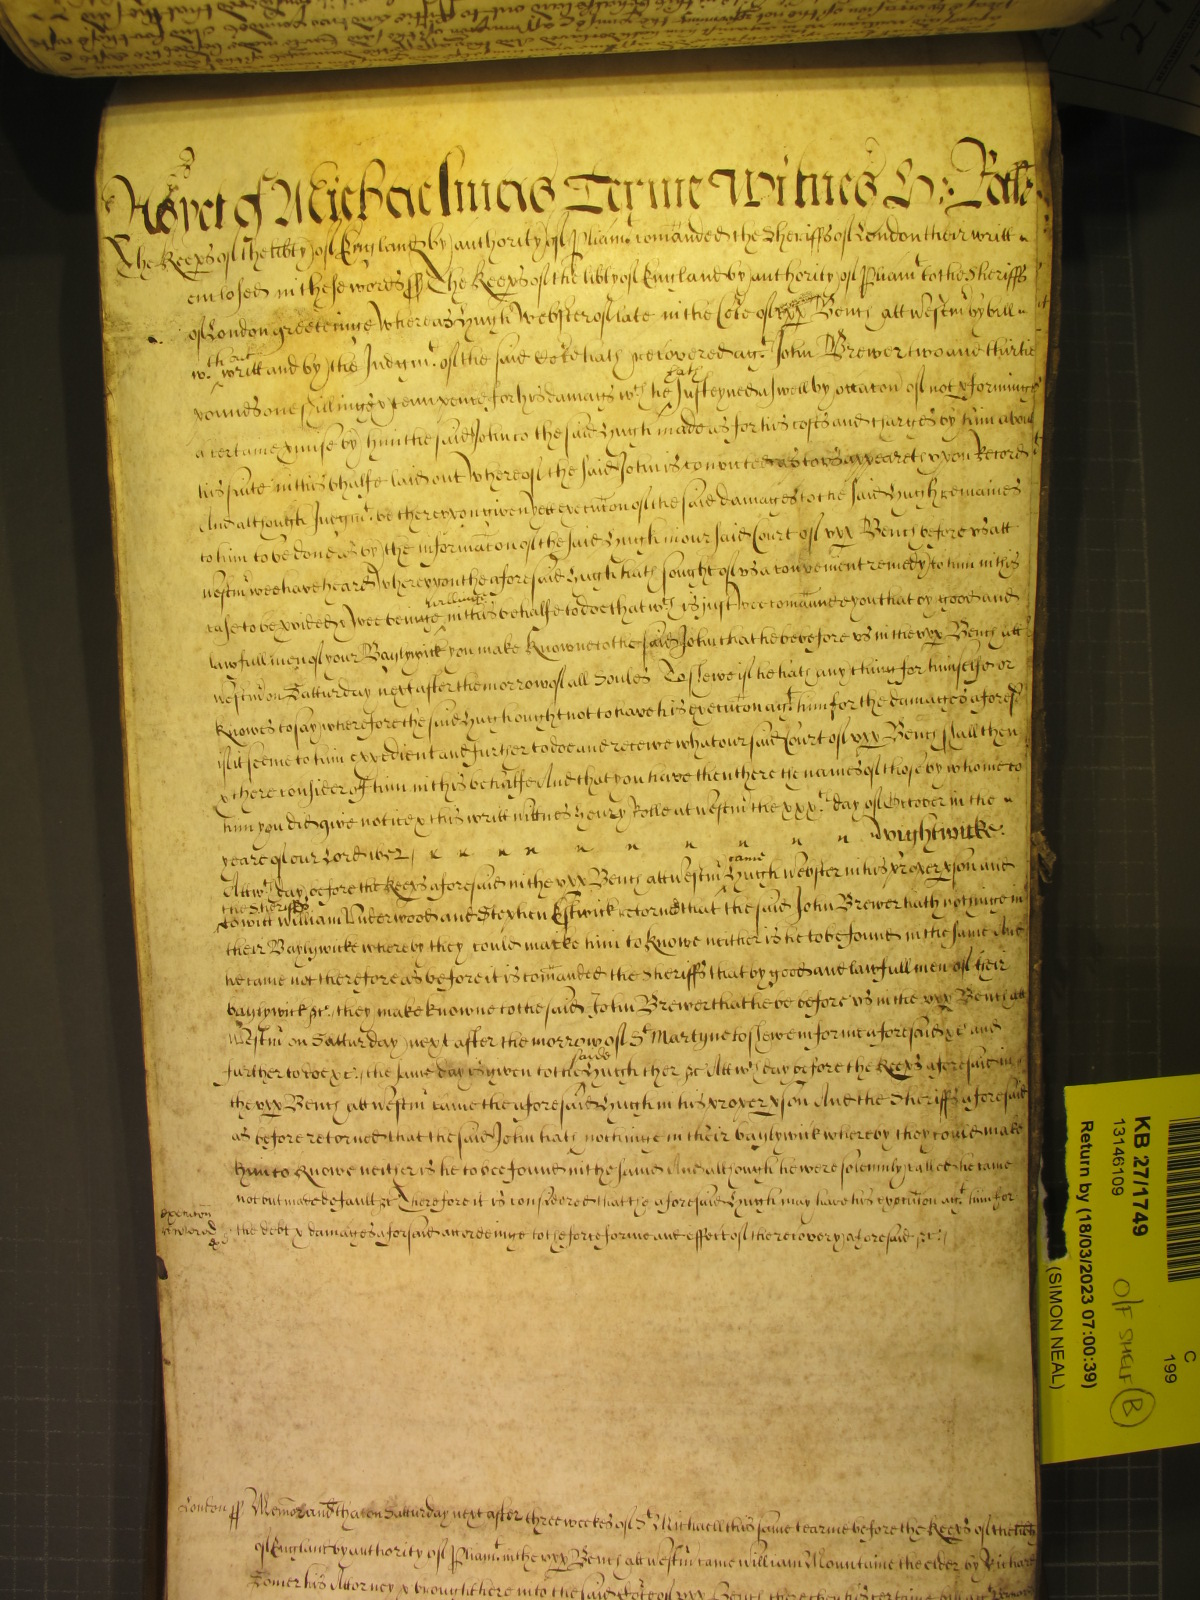 As yet of Michaelmas Terme Witnes H: Rolle
The Keeps of the libty of England by authority of Pliamt comanded the Sheriffs of London their writt
enclosed in these words ss The Keeps of the libty of England by authority of Pliamt to the Sheriffs
of London greeteinge Whereas Hugh Webster of late in the Cote of vpp Bench att Westm by bill
wth out writt and by the Judgmt of the said Cote hath recovered agt John Brewer two and thirtie
pounds one shillinge & tenn pence for his damags wch he hath susteyned aswell by occacon of not pforminge
a certaine pmise by him the said John to the said Hugh made as for his costs and charges by him about
his suite in this bhalfe laid out Whereof the said John is convicted as to us appeareth upon Record
And although Judgmt be thereupon given yett execucon of the said damages to the said Hugh remaines
to him to be done as by the informacon of the said Hugh in our said Court of vpp Bench before us att
Westm wee have heard Whereupon the aforesaid Hugh hath sought of us a convenient remedy to him in this
case to be pvided & wee beinge willinge in this behalfe to doe that wch is just wee comaund you that by good and
lawfull men of your Baylywick you make knowne to the said John that he be before us in the vpp Bench att
Westm on Satturday next after the morrow of all Soules To shewe if he hath any thing for himselfe or
knowes to say wherefore the said Hugh ought not to have his execucon agt him for the damages aforesd
if it seeme to him expedient and further to doe and receive what our said Court of vpp Bench shall then
& there consider of him in this behalfe And that you have then there the names of those by whome to
him you did give notice & this writt wittnes Henry Rolle at Westm the xxxth day of October in the
yeare of our Lord 1652
Wightwicke:
Att wch day before the Keeps aforesaid in the vpp Bench att Westm came Hugh Webster in his proper pson and
the Sheriffs
to witt William Underwood and Stephen Estwick retorned that the said John Brewer hath nothinge in
their Baylywicke whereby they could make him to knowe neither is he to be found in the same And
he came not therefore as before it is comanded the Sheriffs that by good and lawfull men of their
baylywick &c. they make knowne to the said John Brewer that he be before us in the vpp Bench att
Westm on Satturday next after the morrow of St Martyne to shew in forme aforesaid &c and
further to doe &c. the same day is given to the saide Hugh ther &c Att wch day before the Keeps aforesaid in
the vpp Bench att Westm came the aforesaid Hugh in his proper pson And the Sheriffs aforesaid
as before retorned that the said John hath nothinge in their baylywick whereby they could make
him to knowe neither is he to bee found in the same And although he were solemnly called he came
not but made default &c Therefore it is considered that the aforesaid Hugh may have his execucon agt him for
the debt & damages aforsaid accordinge to the force forme and effect of the recovery aforesaid &c.
execucon
&c
London ss Memorand that on Satturday next after three weekes of St Michaell this same tearme before the Keeps of the libty
of England by authority of Pliamt in the vpp Bench att Westm came William Mountaine the elder by Richard
Somer his Attorney & brought here into the said Cote of vpp Bench there then his certaine bill agt
KB 27/1749
13146109
Return by (18/03/2023 07:00:39)
(SIMON NEAL)
O/F SHELF B
C
199